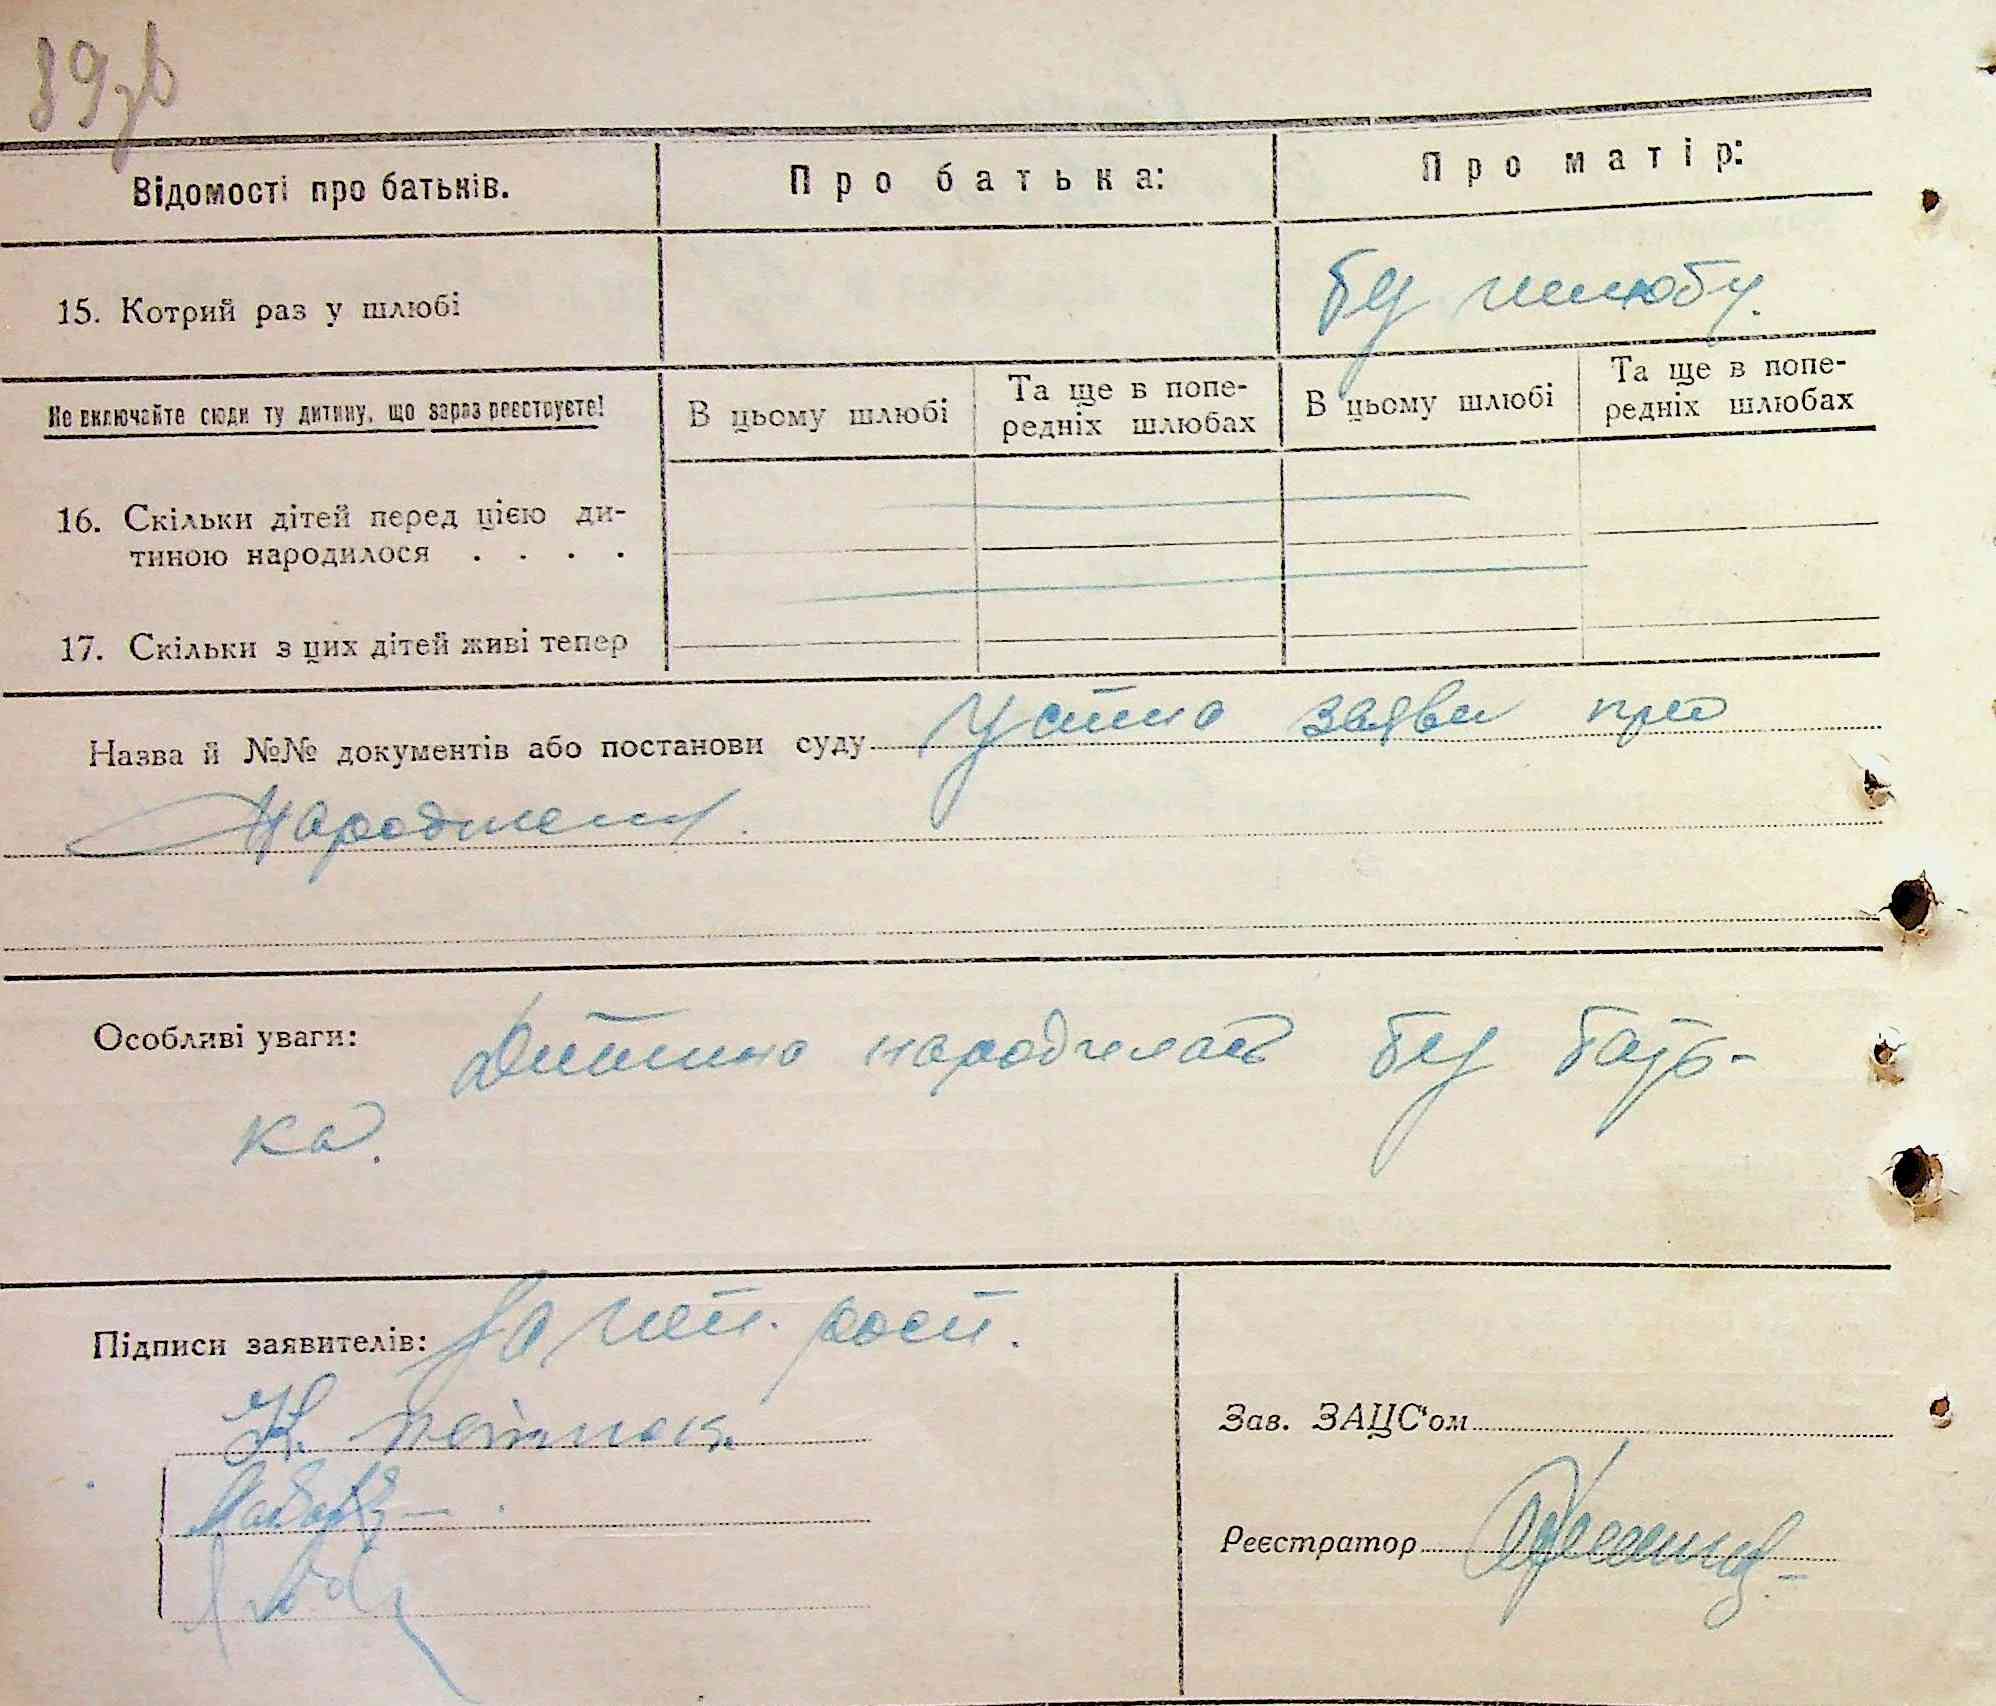 89зв
Відомості про батьків. Про батька: Про матір:
15. Котрий раз у шлюбі бу шлюбу.
Не включайте сюди ту дитину, що зараз реєструєте!
В цьому шлюбі Та ще в попе- В цьому шлюбі Та ще в попе-
редніх шлюбах редніх шлюбах
16. Скільки дітей перед цією ди-
тиною народилося . . . .
17. Скільки з цих дітей живі тепер
Назва й №№ документів або постанови суду Устна заява про
народжен
Особливі уваги: Дитина народилась бу бать-
ка.
Підписи заявителів: За неп. росп.
К.
Зав. ЗАЦС'ом
Реєстратор